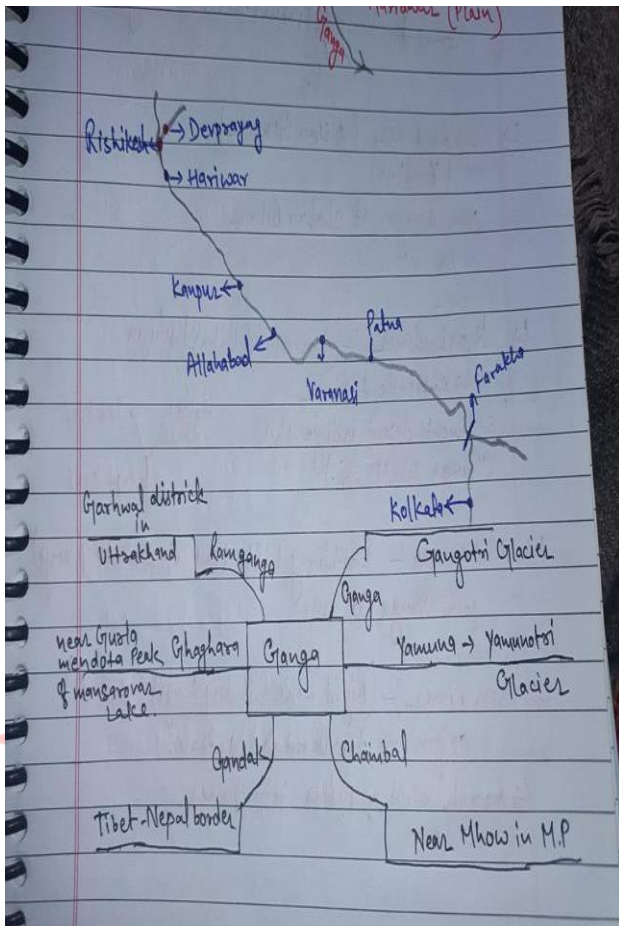 Ganga
(Plain)
Rishikesh
→ Devprayag
→ Hariwar
Kanpur ←
Allahabad ←
Varanasi
Patna
Farakha
Kolkata ←
Garhwal districk
in
Uttrakhand
Ramganga
Gangotri Glacier
Ganga
near Gurla
mendota Peak
of mansarovar
Lake.
Ghaghara
Ganga
Yamuna → Yamunotri
Glacier
Gandak
Chambal
Tibet-Nepal border
Near Mhow in M.P